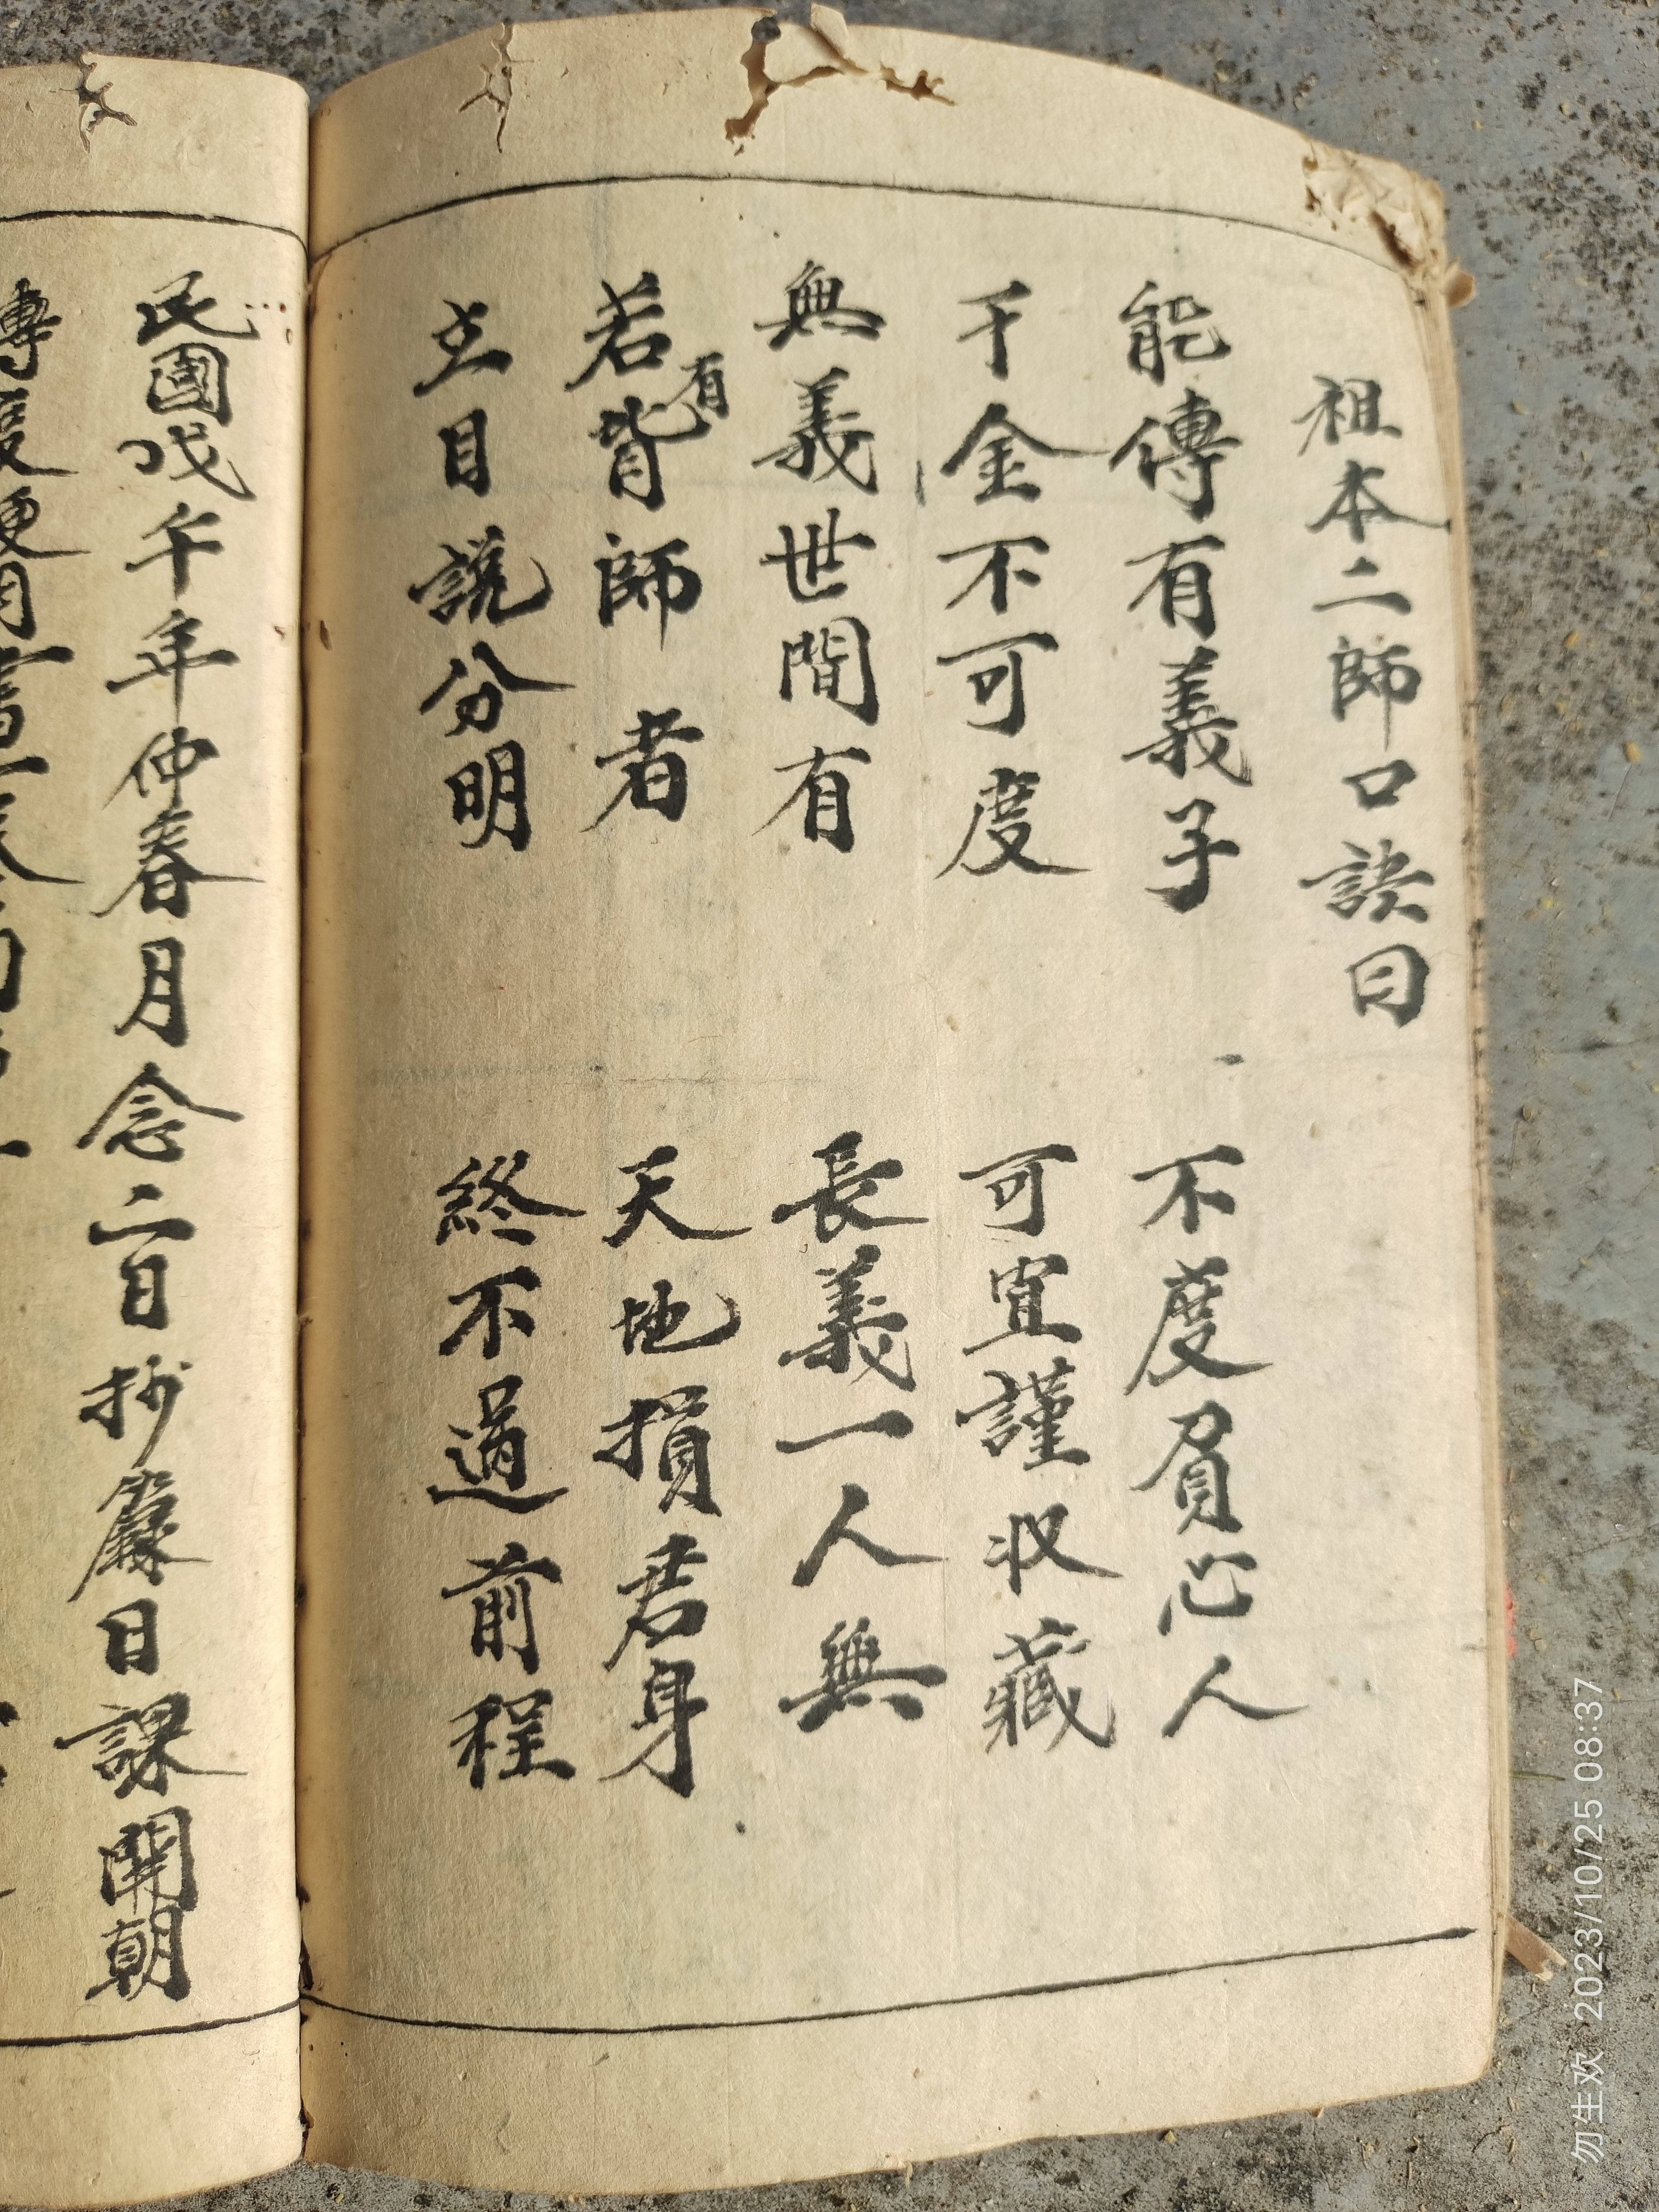 祖本二師口訣曰
能傳有義子 不度負心人
千金不可度 可宜謹收藏
無義世間有 長義一人無
若有背師者 天地損君身
主目説分明 終不過前程
民國戊午年仲春月念二日抄嚴日課開朝
勿生欢 2023/10/25 08:37